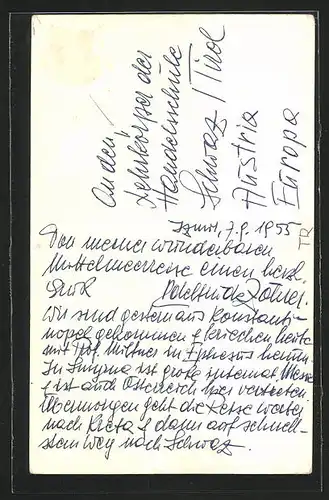 An den
Lehrkörper der
Handelsschule
Schwaz / Tirol
Austria
Europa
TR
Izmir, 7.9.1955
Von meiner wunderbaren
Mittelmeerreise einen herzl.
Gruß
Wir sind gestern aus Konstanti-
nopel gekommen & kriechen heute
mit Prof. Miltner in Ephesus herum.
In Smyrna ist große internat. Messe
& ist auch Österreich hier vertreten.
Übermorgen geht die Reise weiter
nach Kreta & dann auf schnell-
stem Weg nach Schwaz.